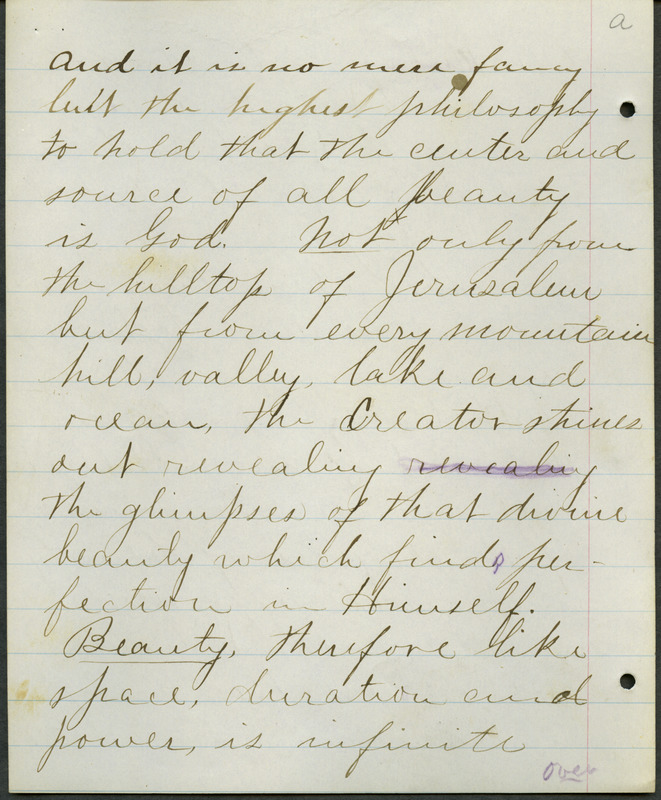 a
and it is no mere fancy
but the highest philosophy
to hold that the center and
source of all beauty
is God. Not only from
the hilltop of Jerusalem
but from every mountain
hill, valley, lake and
ocean, the Creator shines
out revealing revealing
the glimpses of that divine
beauty which finds per-
fection in Himself.
Beauty, therefore like
space, duration and
power, is infinite
over